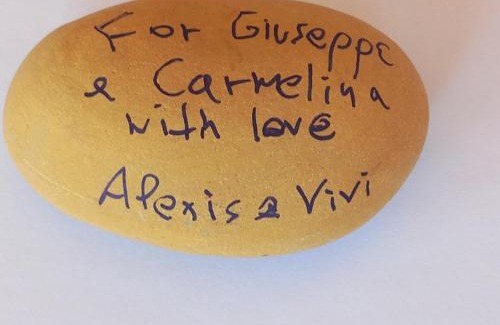 For Giuseppe
e Carmelina
with love
Alexis e Vivi